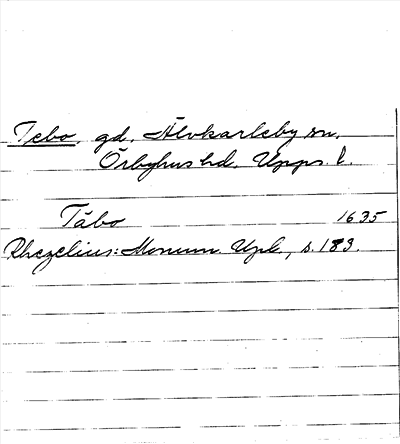 Tebo, gd, Älvkarleby sn.
Örbyhus hd. Upps. l.
Tåbo 1635
Rhezelius: Monum. Upl., s. 183.